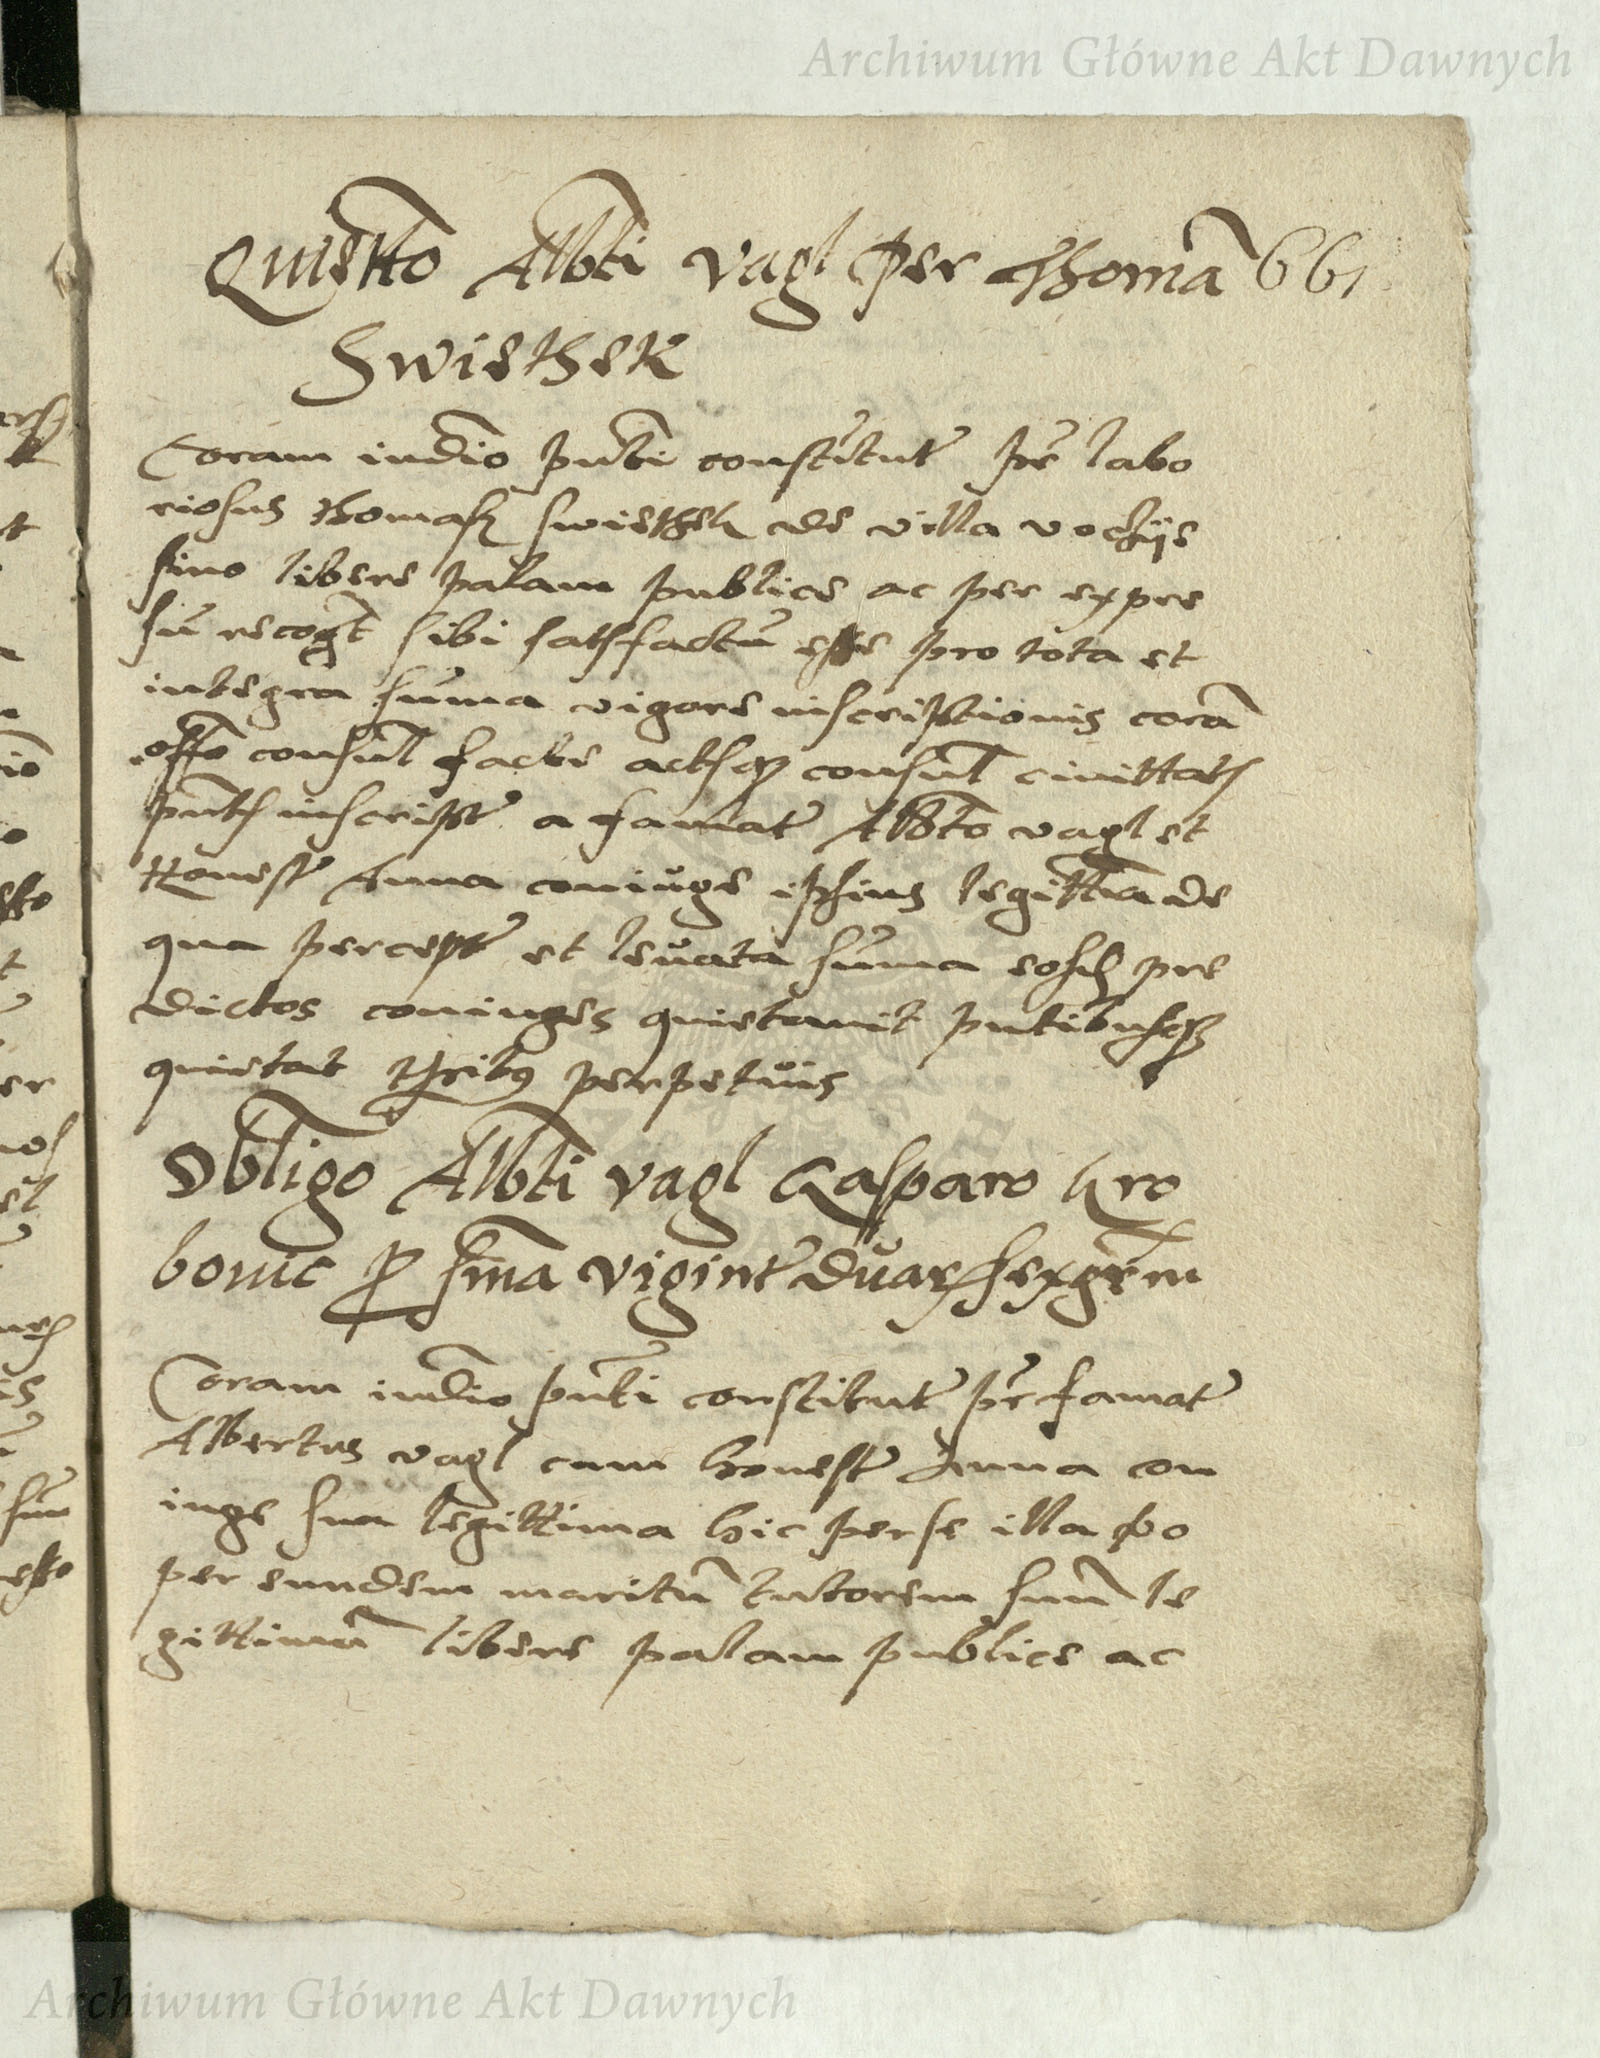 Archiwum Główne Akt Dawnych
Quietto Albti Vagl per Thomā 661
Swiethek
Coram iudio pnti constitut pr labo
riosus Thomass Swiethek de villa
sino libere palam publice ac per expre
sū recogt sibi satsfactū esse pro tota et
integra suma vigore inscriptionis corā
offo consul facte actsq consul civittats
pnts inscript a famat Albto vagl et
Honest Anna coniuge ipsius legittīa de
qua percept et levata suma eosd pre
dictos coniuges quietavit pntibusq
quietat perpetuis
Obligo Albti Vagl Gasparo Gro
bonic p sma vigint duar sexgrm
Coram iudio pnti constitut pr famat
Albertus vagl cum honest Anna con
iuge sua legittima hic per se illa vo
per eundem maritū tutorem suū le
gittimū libere palam publice ac
Archiwum Główne Akt Dawnych